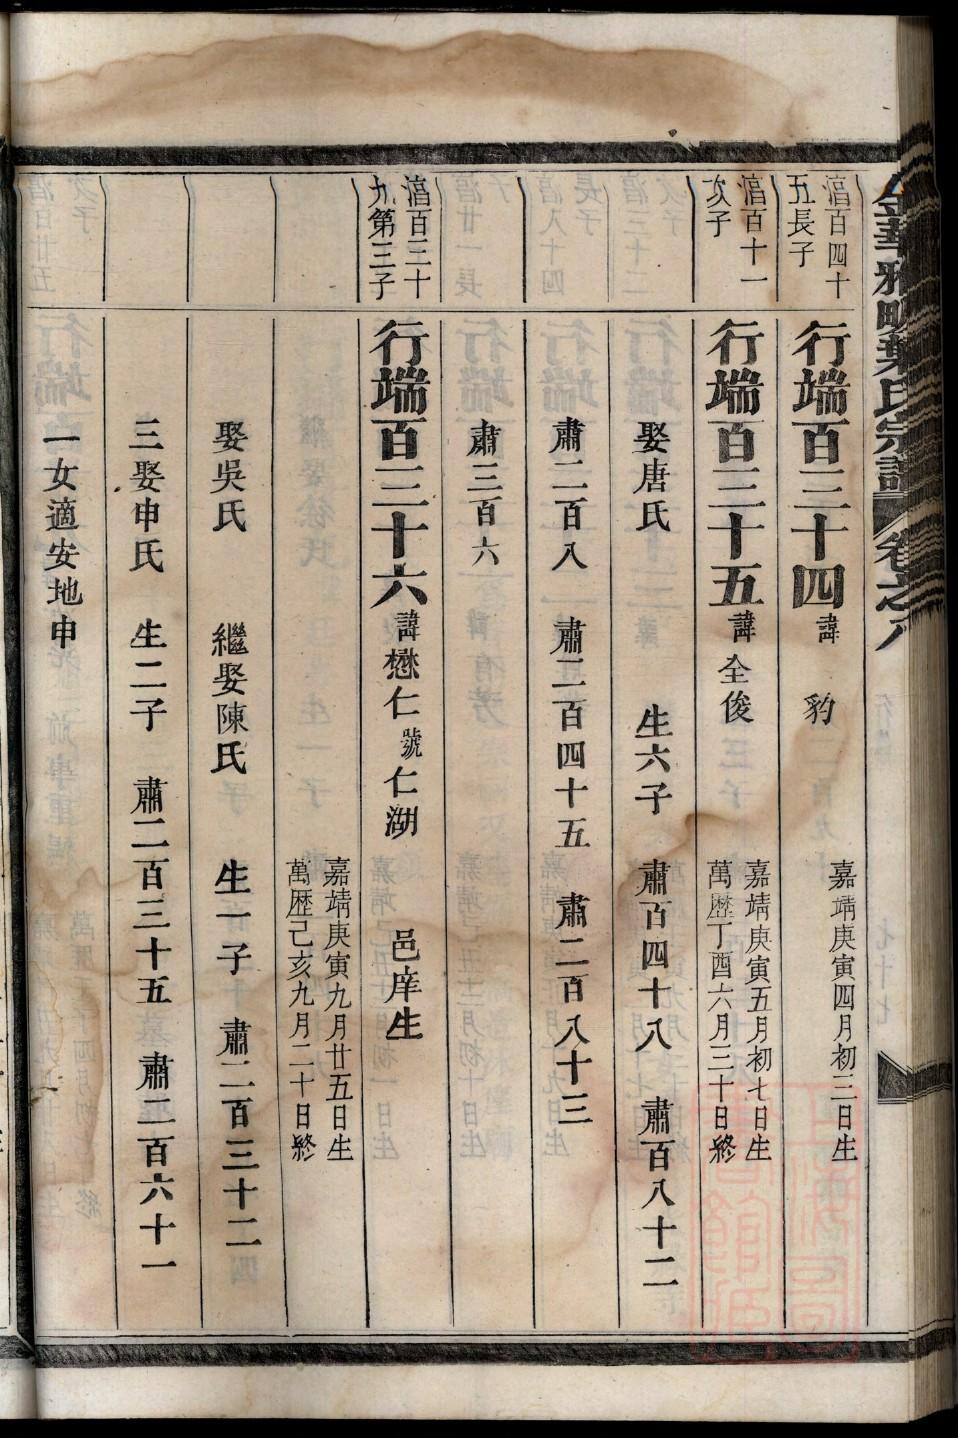 金華雅畈葉氏宗譜 卷之八
湻百四十五長子
行端百三十四 諱 豹 嘉靖庚寅四月初三日生
湻百十一次子
行端百三十五 諱全俊 嘉靖庚寅五月初七日生
萬歷丁酉六月三十日終
娶唐氏 生六子 肅百四十八 肅百八十二
肅二百八 肅二百四十五 肅二百八十三
肅三百六
湻百三十九第三子
行端百三十六 諱懋仁號仁湖 邑庠生
嘉靖庚寅九月廿五日生
萬歷己亥九月二十日終
娶吳氏 繼娶陳氏 生一子 肅二百三十二
三娶申氏 生二子 肅二百三十五 肅二百六十一
一女適安地申